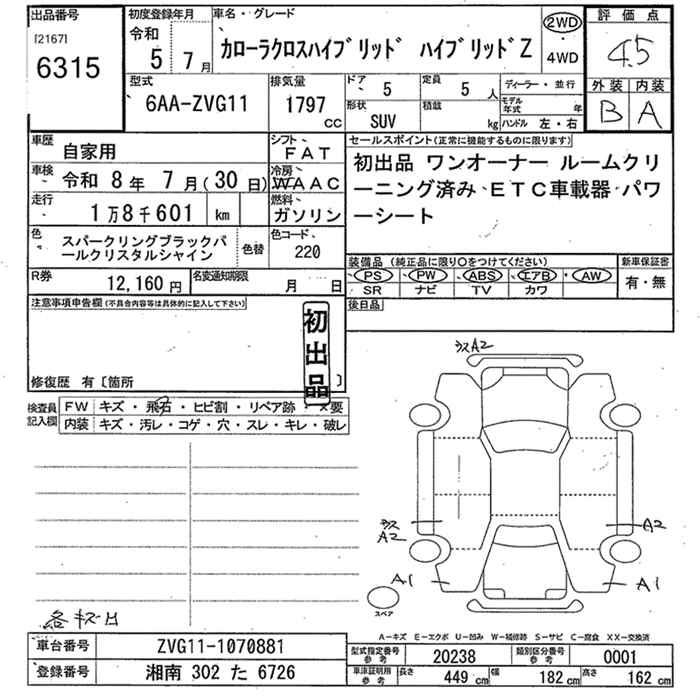 出品番号
[2167]
6315
初度登録年月
令和
5 7月
車名・グレード
カローラクロスハイブリッド ハイブリッドZ
2WD
4WD
評価点
4.5
外装 内装
B A
型式
6AA-ZVG11
排気量
1797
cc
ドア
5
定員
5 人
形状
SUV
積載
kg
ディーラー・並行
モデル年式 年
ハンドル 左・右
車歴
自家用
シフト
FAT
車検
令和 8年 7月(30日)
冷房
WAAC
走行
1万8千601 km
燃料
ガソリン
色
スパークリングブラックパールクリスタルシャイン
色替
色コード
220
R券
12,160円
名変通知期限
月 日
セールスポイント(正常に機能するものに限ります)
初出品 ワンオーナー ルームクリ
ーニング済み ETC車載器 パワ
ーシート
装備品 (純正品に限り○をつけてください)
PS PW ABS エアB AW
SR ナビ TV カワ
新車保証書
有・無
後日品
注意事項申告欄(不具合内容等は具体的に記入して下さい)
初出品
修復歴 有〔箇所 〕
検査員記入欄
FW キズ・飛石・ヒビ割・リペア跡・×要
内装 キズ・汚レ・コゲ・穴・スレ・キレ・破レ
A2
A2
A2
A1
A1
スペア
各キズH
A-キズ E-エクボ U-凹み W-補修跡 S-サビ C-腐食 XX-交換済
車台番号
ZVG11-1070881
登録番号
湘南 302 た 6726
型式指定番号 参考
20238
類別区分番号 参考
0001
車庫証明用 参考
長さ 449cm
幅 182cm
高さ 162cm